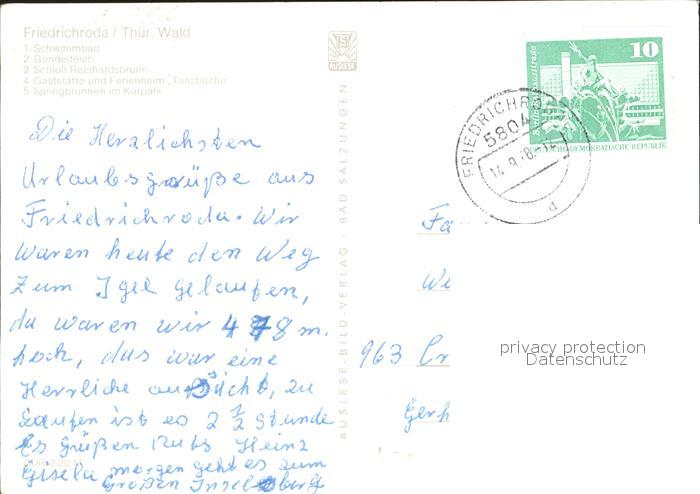 Friedrichroda / Thür. Wald
1 Schwimmbad
2 Gondelteich
3 Schloß Reinhardsbrunn
4 Gaststätte und Ferienheim „Tanzbuche"
5 Springbrunnen im Kurpark
AUSLESE
Die Herzlichsten
Urlaubsgrüße aus
Friedrichroda. Wir
waren heute den Weg
zum Igel gelaufen,
da waren wir 478 m.
hoch, das war eine
Herrliche aussicht, zu
Laufen ist es 2 1/2 Stunde
Es Grüßen Heinz
Gisela morgen geht es zum
Großen Inselsberg
DDR 0,20 M
AUSLESE-BILD-VERLAG · BAD SALZUNGEN
10
DEUTSCHE DEMOKRATISCHE REPUBLIK
FRIEDRICHRODA
5804
d
Fa
We
963
Gerh
privacy protection
Datenschutz